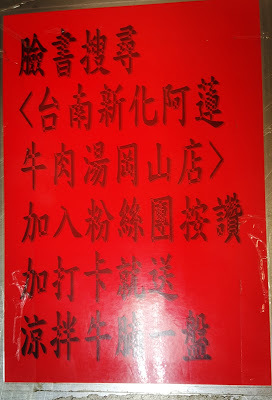 臉書搜尋
<台南新化阿蓮
牛肉湯岡山店>
加入粉絲團按讚
加打卡就送
涼拌牛腱一盤